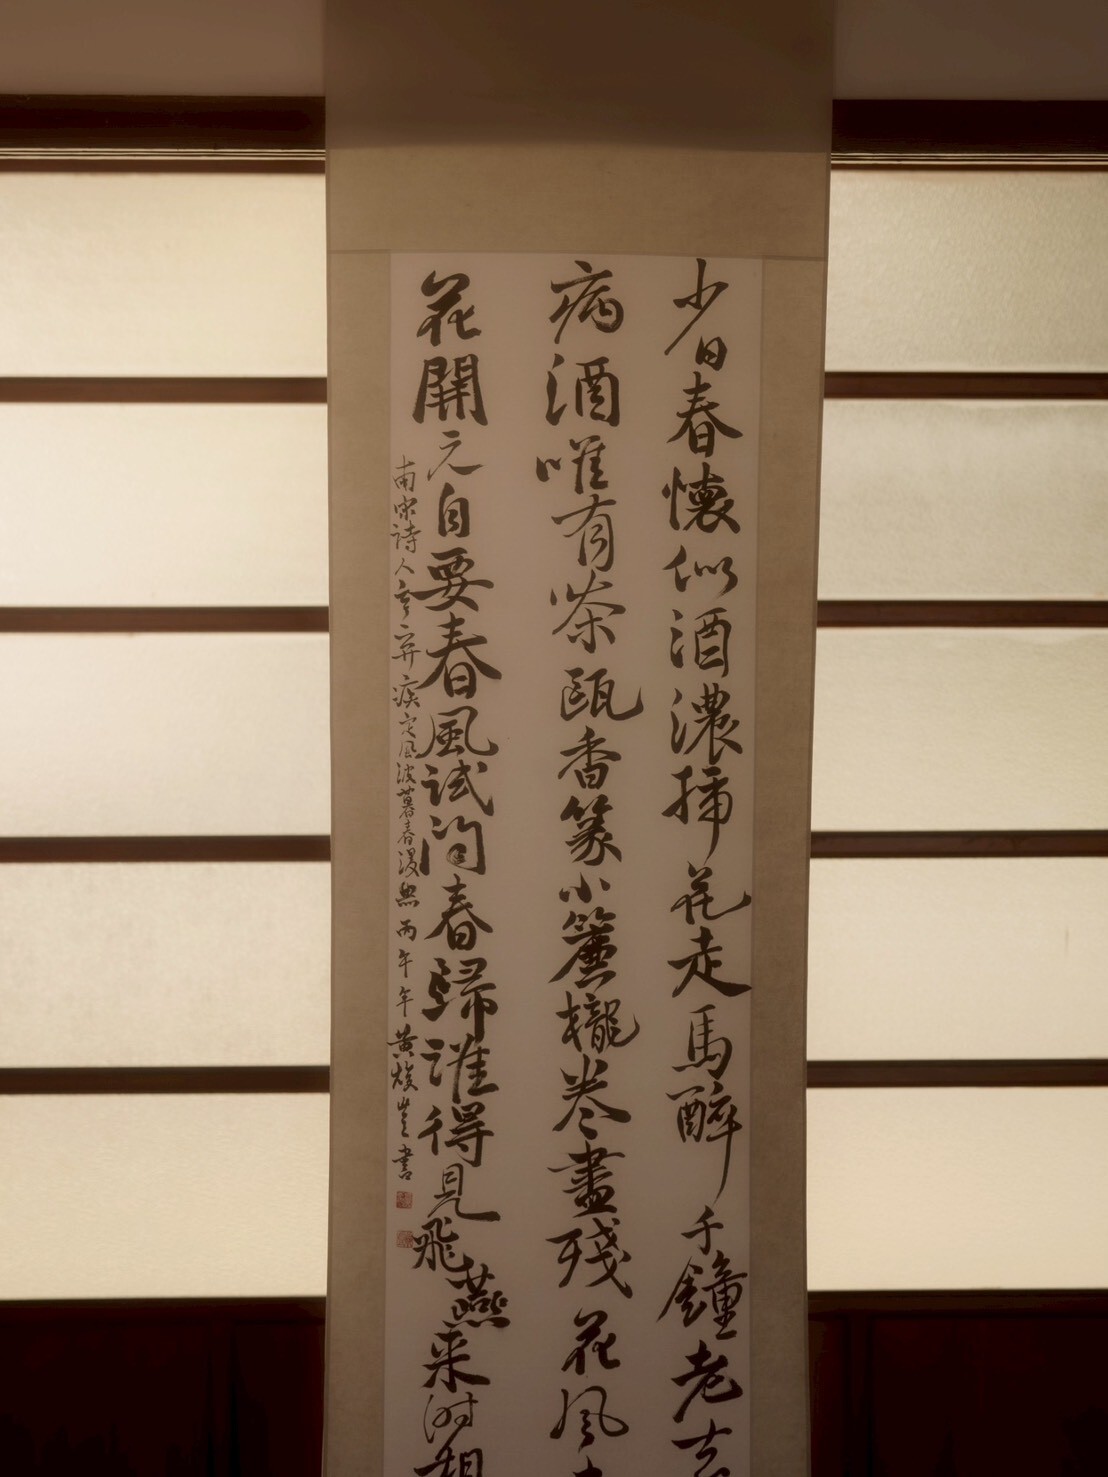 少日春懷似酒濃插花走馬醉千鐘老去
病酒唯有茶甌香篆小簾櫳卷盡殘花風
花開元自要春風試問春歸誰得見飛燕来時相
南宋詩人辛弃疾定風波暮春漫興丙午年黃書